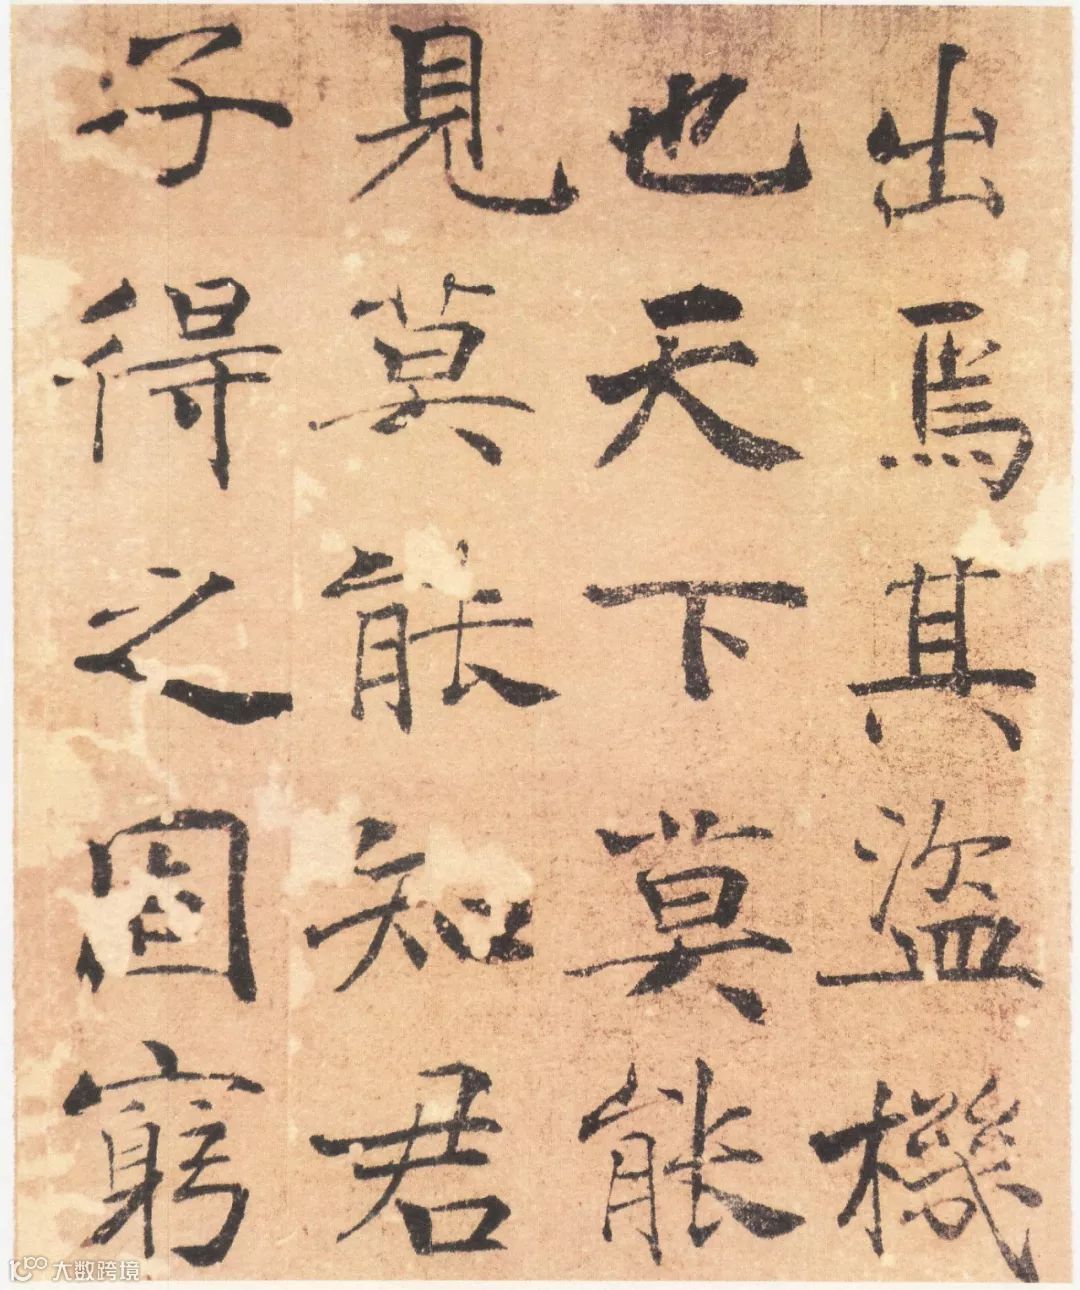 出焉其盜機
也天下莫能
見莫能知君
子得之固窮
大数跨境